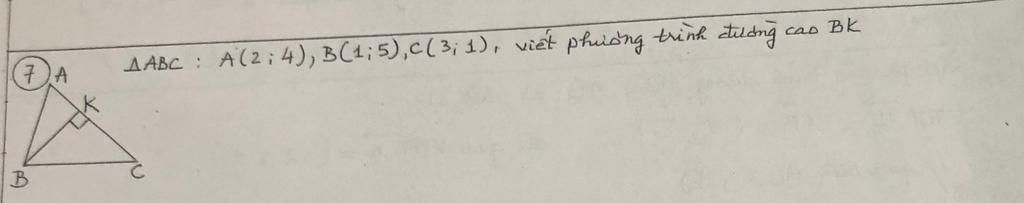 ⑦ ΔABC : A(2;4), B(1;5), C(3;1), viết phương trình đường cao BK
A
K
B
C